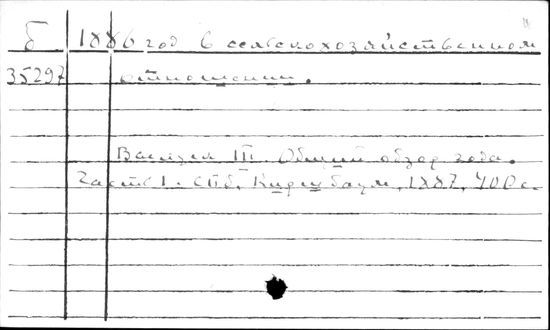 Б 1886 год в сельскохозяйственном
35297 отношении.
Выпуск III. Общий обзор года.
Часть I. СПб, Киршбаум, 1887, 400 с.